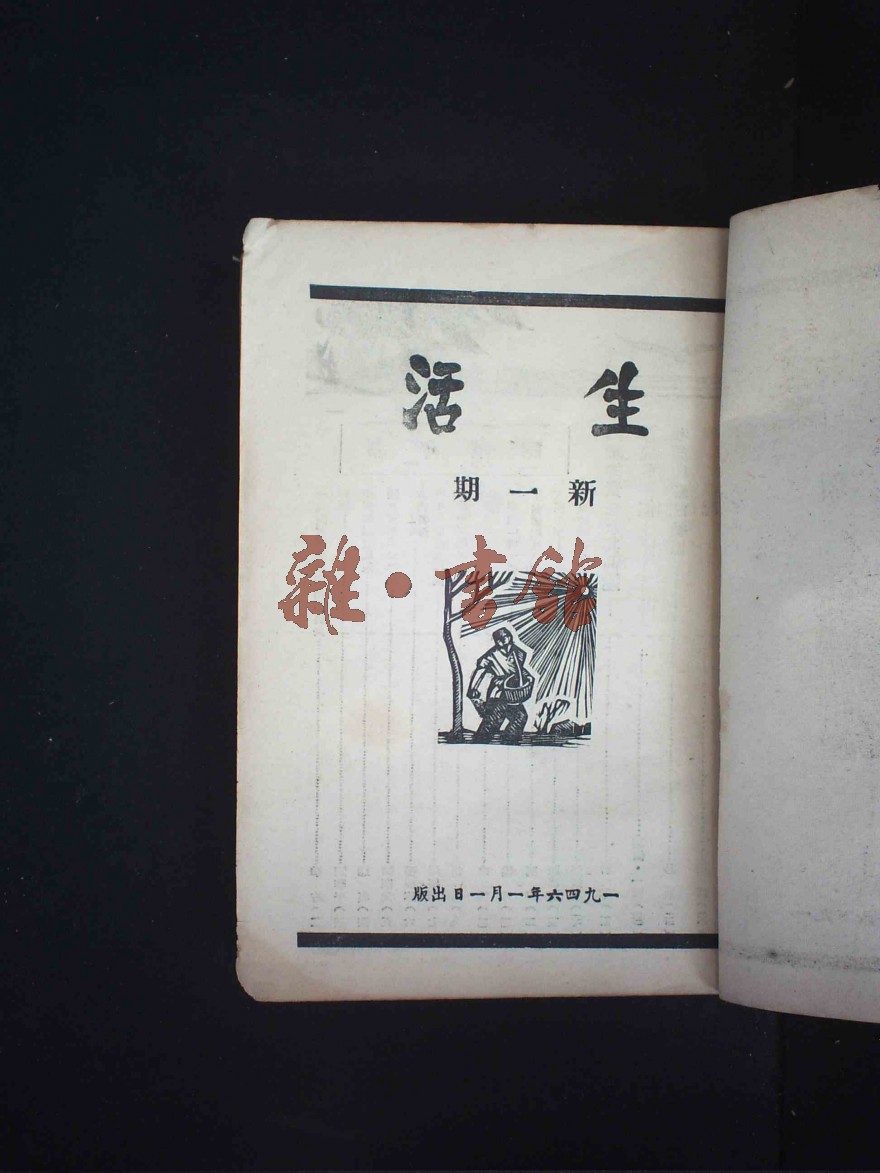 生活
新一期
雜·書館
一九四六年一月一日出版